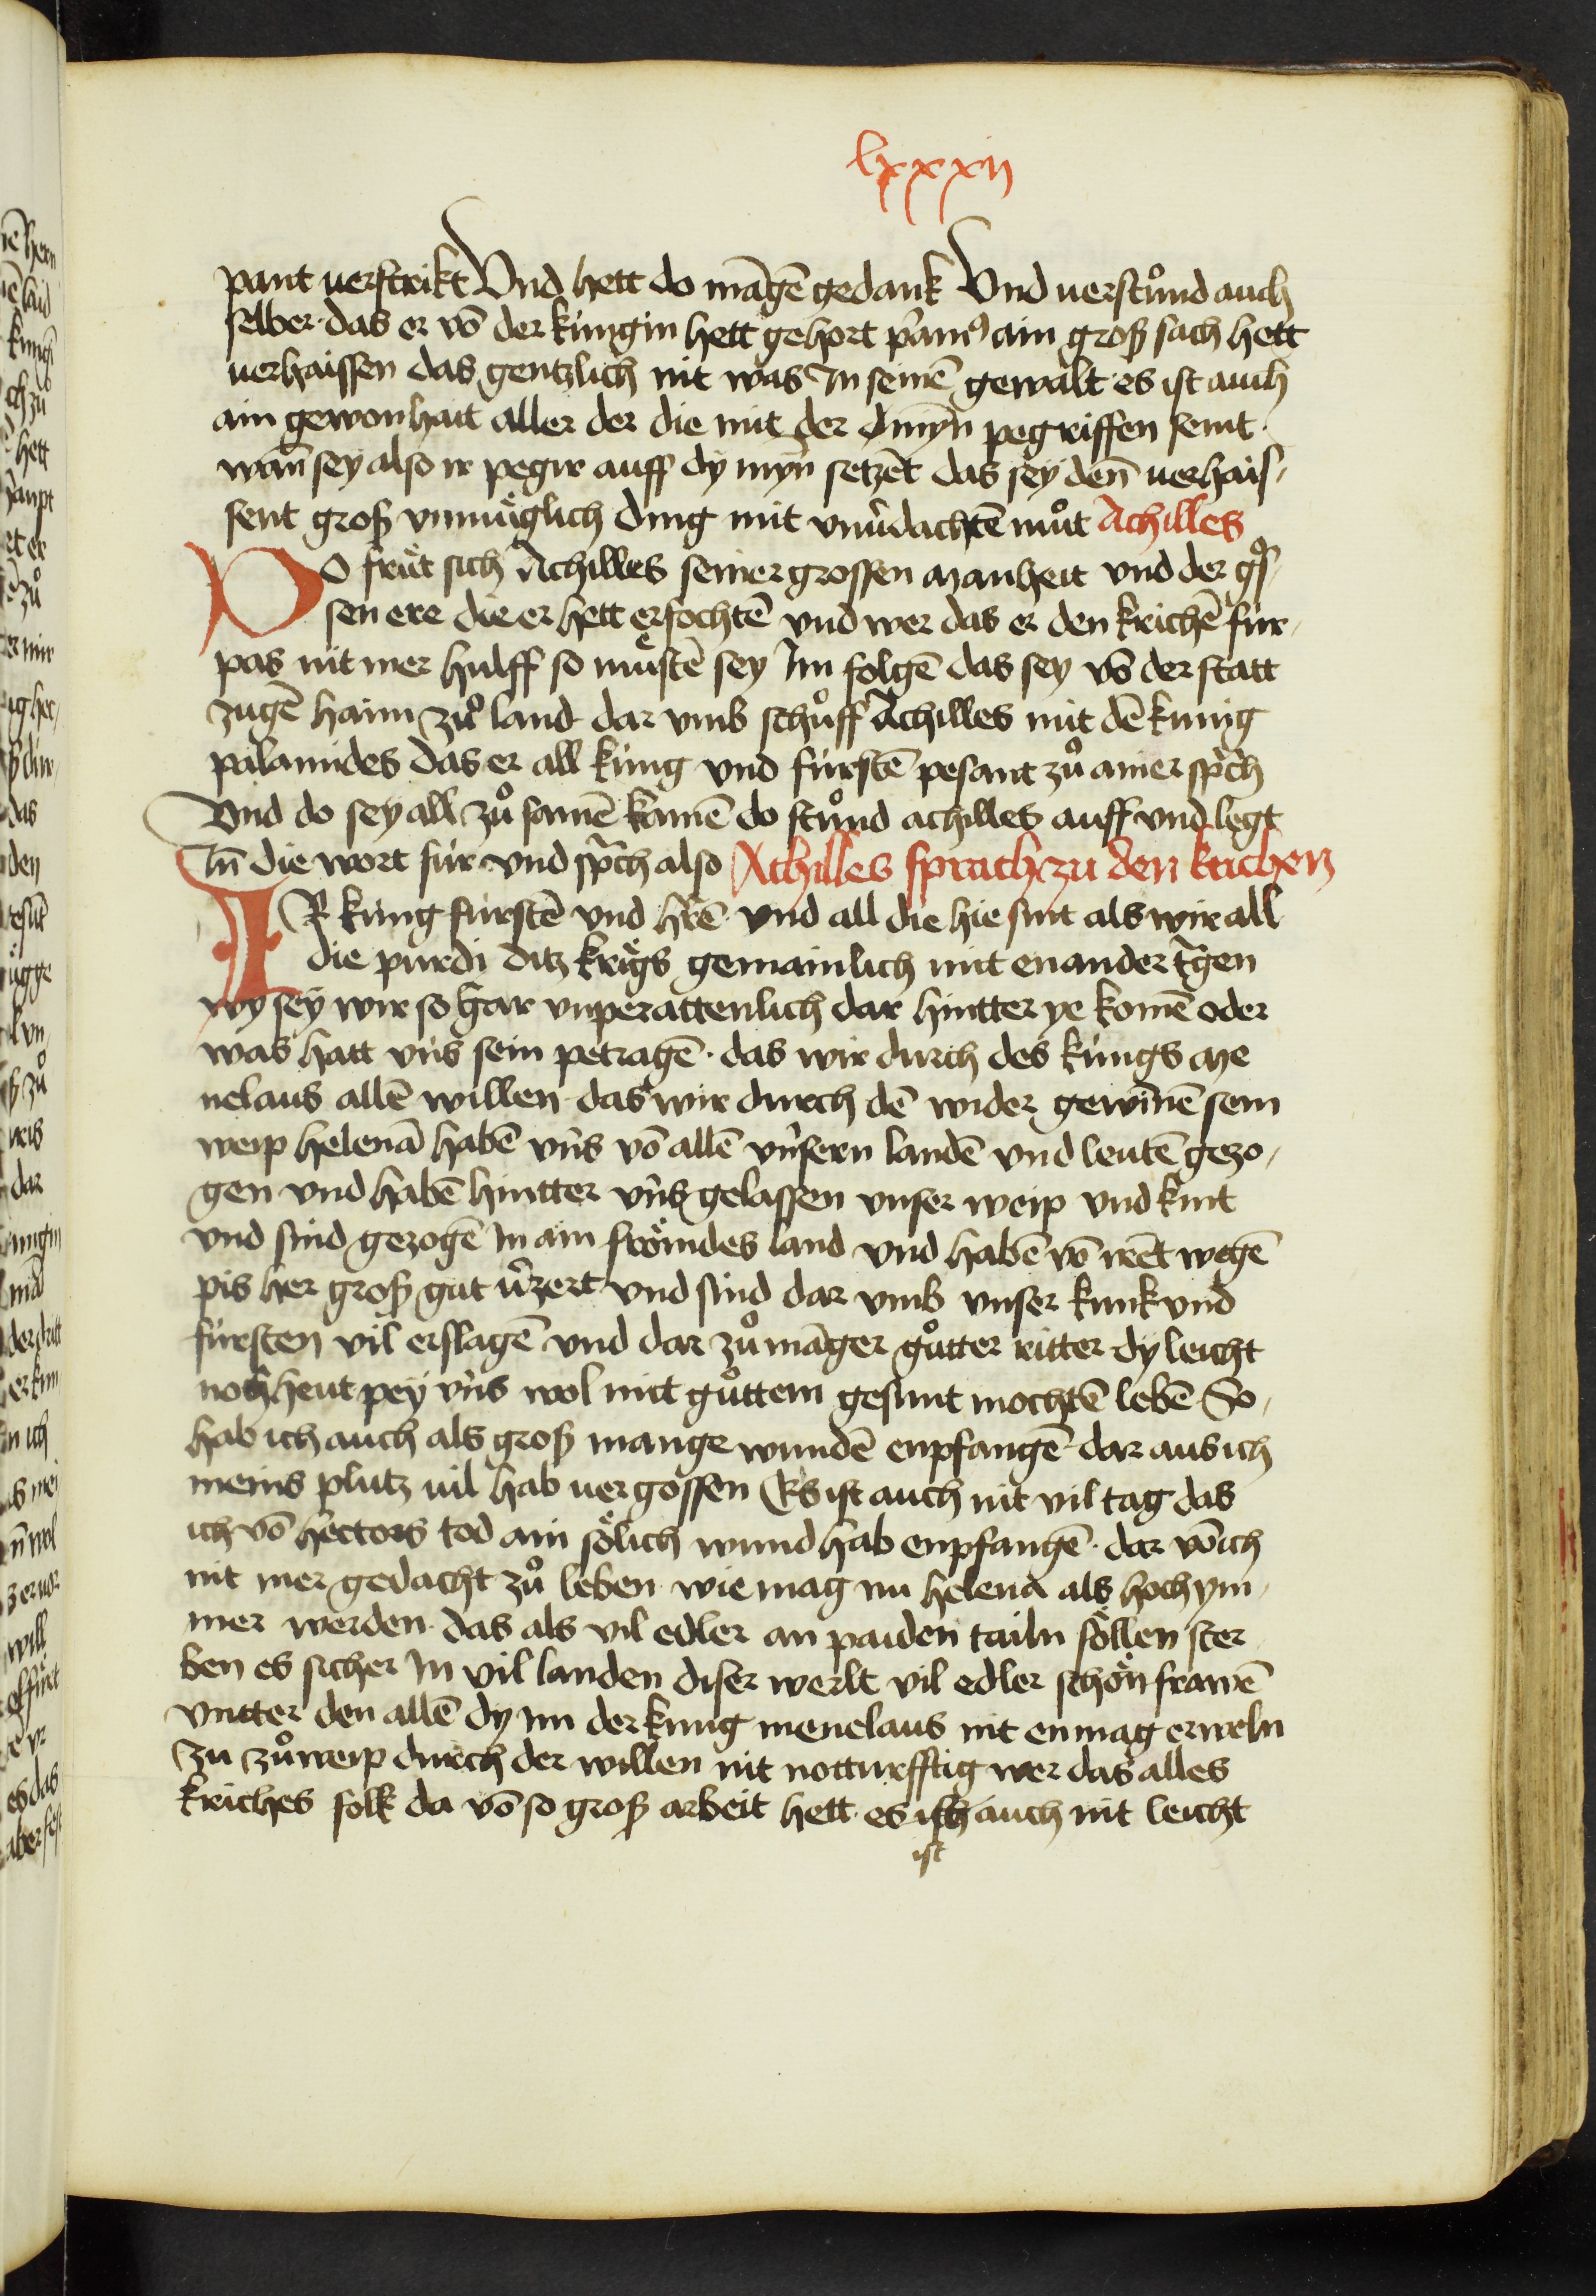 lxxxij
pant uerstrikt Vnd hett do mãgẽ gedank Vnd uerstůnd auch
selber · das er võ der kúngin hett gehort p̃amꝰ ain groß sach hett
uerhaissen das gentzlich nit was In seinẽ gewalt · es ist auch
ain gewonhait aller der die mit der dmyn̄ pegriffen semt ·
wan̄ sey also ir pegir auff dy myn̄ setzẽt das sey den̄ uerhais¸
sent groß vnmüglich ding mit vnũdachtẽ můt Achilles
DO frät sich Achilles seiner grossen manheit vnd der gꝰs¸
sen ere die er hett erfochtẽ vnd wer das er den krichẽ fúr¸
pas nit mer hulff so müstẽ sey Im folgẽ das sey võ der statt
zugẽ haim zů land dar vmb schůff Achilles mit dẽ kunig
palamides das er all kúng vnd fúrstẽ pesant zů ainer sp̃ch
Vnd do sey all zů samẽ kamẽ do stůnd achilles auff vnd legt
In̄ die wort fúr vnd sp̃ch also Achilles sprach zu den krichen
IR kúng fúrstẽ vnd hr̃ẽ vnd all die hie sint als wir all
die purdi ditz krigs gemainlich mit enander t̃gen
wy sey wir so gar vnperattenlich dar hintter ye komẽ oder
was hatt vns sein petragẽ · das wir durch des kúngs me
nelaus allẽ willen das wir durch dẽ wider gewin̄ẽ sem
weip helenã habẽ vns võ allẽ vnsern landẽ vnd leutẽ gezo¸
gen vnd habẽ hintter vns gelassen vnser weip vnd kint
vnd sind gezogẽ In ain frömdes land vnd habẽ võ wegẽ
pis her groß gut ũzert vnd sind dar vmb vnser kunk vnd
fúrsten vil erslagẽ vnd dar zů mãger gůtter ritter dy leicht
noch heut pey vns wol mit gůttem gesunt mochtẽ lebẽ So¸
hab ich auch als groß mange wundẽ enpfangẽ · dar aus ich
meins plutz uil hab uergossen Es ist auch nit vil tag das
ich võ hectors tod ain sölich wund hab enpfangẽ · dar võ ich
nit mer gedacht zů leben wie mag nu helena als hoch ym¸
mer werden · das als vil edler an paiden tailn söllen ster
ben es sicher In vil landen diser werlt vil edler schön frawẽ
vntter den allẽ dy im der kung menelaus nit enmag erweln
zu zů weip durch der willen nit notturfftig wer das alles
kriches folk da võ so groß arbeit hett · es ist auch nit leicht
ist